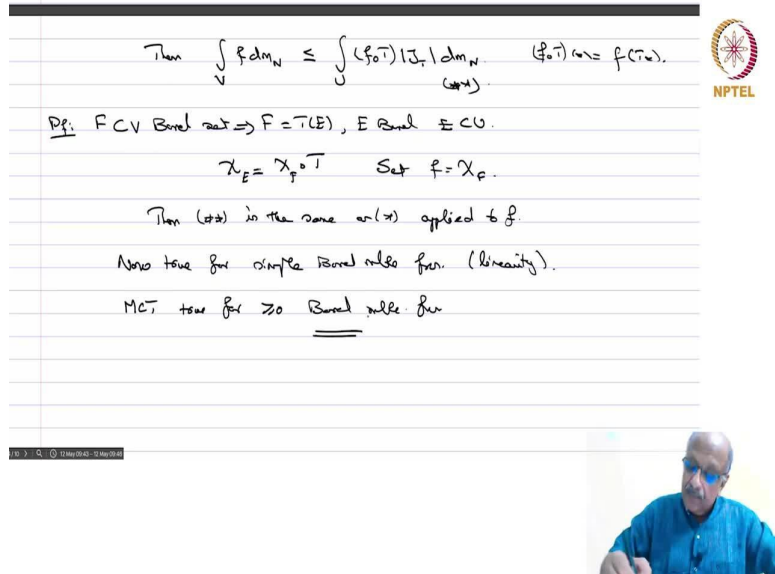 Then ∫_V f dm_N ≤ ∫_U (f∘T) |J_T| dm_N. (f∘T)(x) = f(Tx).
(**)
NPTEL
Pf: F ⊂ V Borel set ⇒ F = T(E), E Borel E ⊂ U.
χ_E = χ_F ∘ T Set f = χ_F.
Then (**) is the same as (*) applied to f.
Now true for simple Borel mble fns. (linearity).
MCT true for ≥0 Borel mble. fns
12 May 09:43 - 12 May 09:48